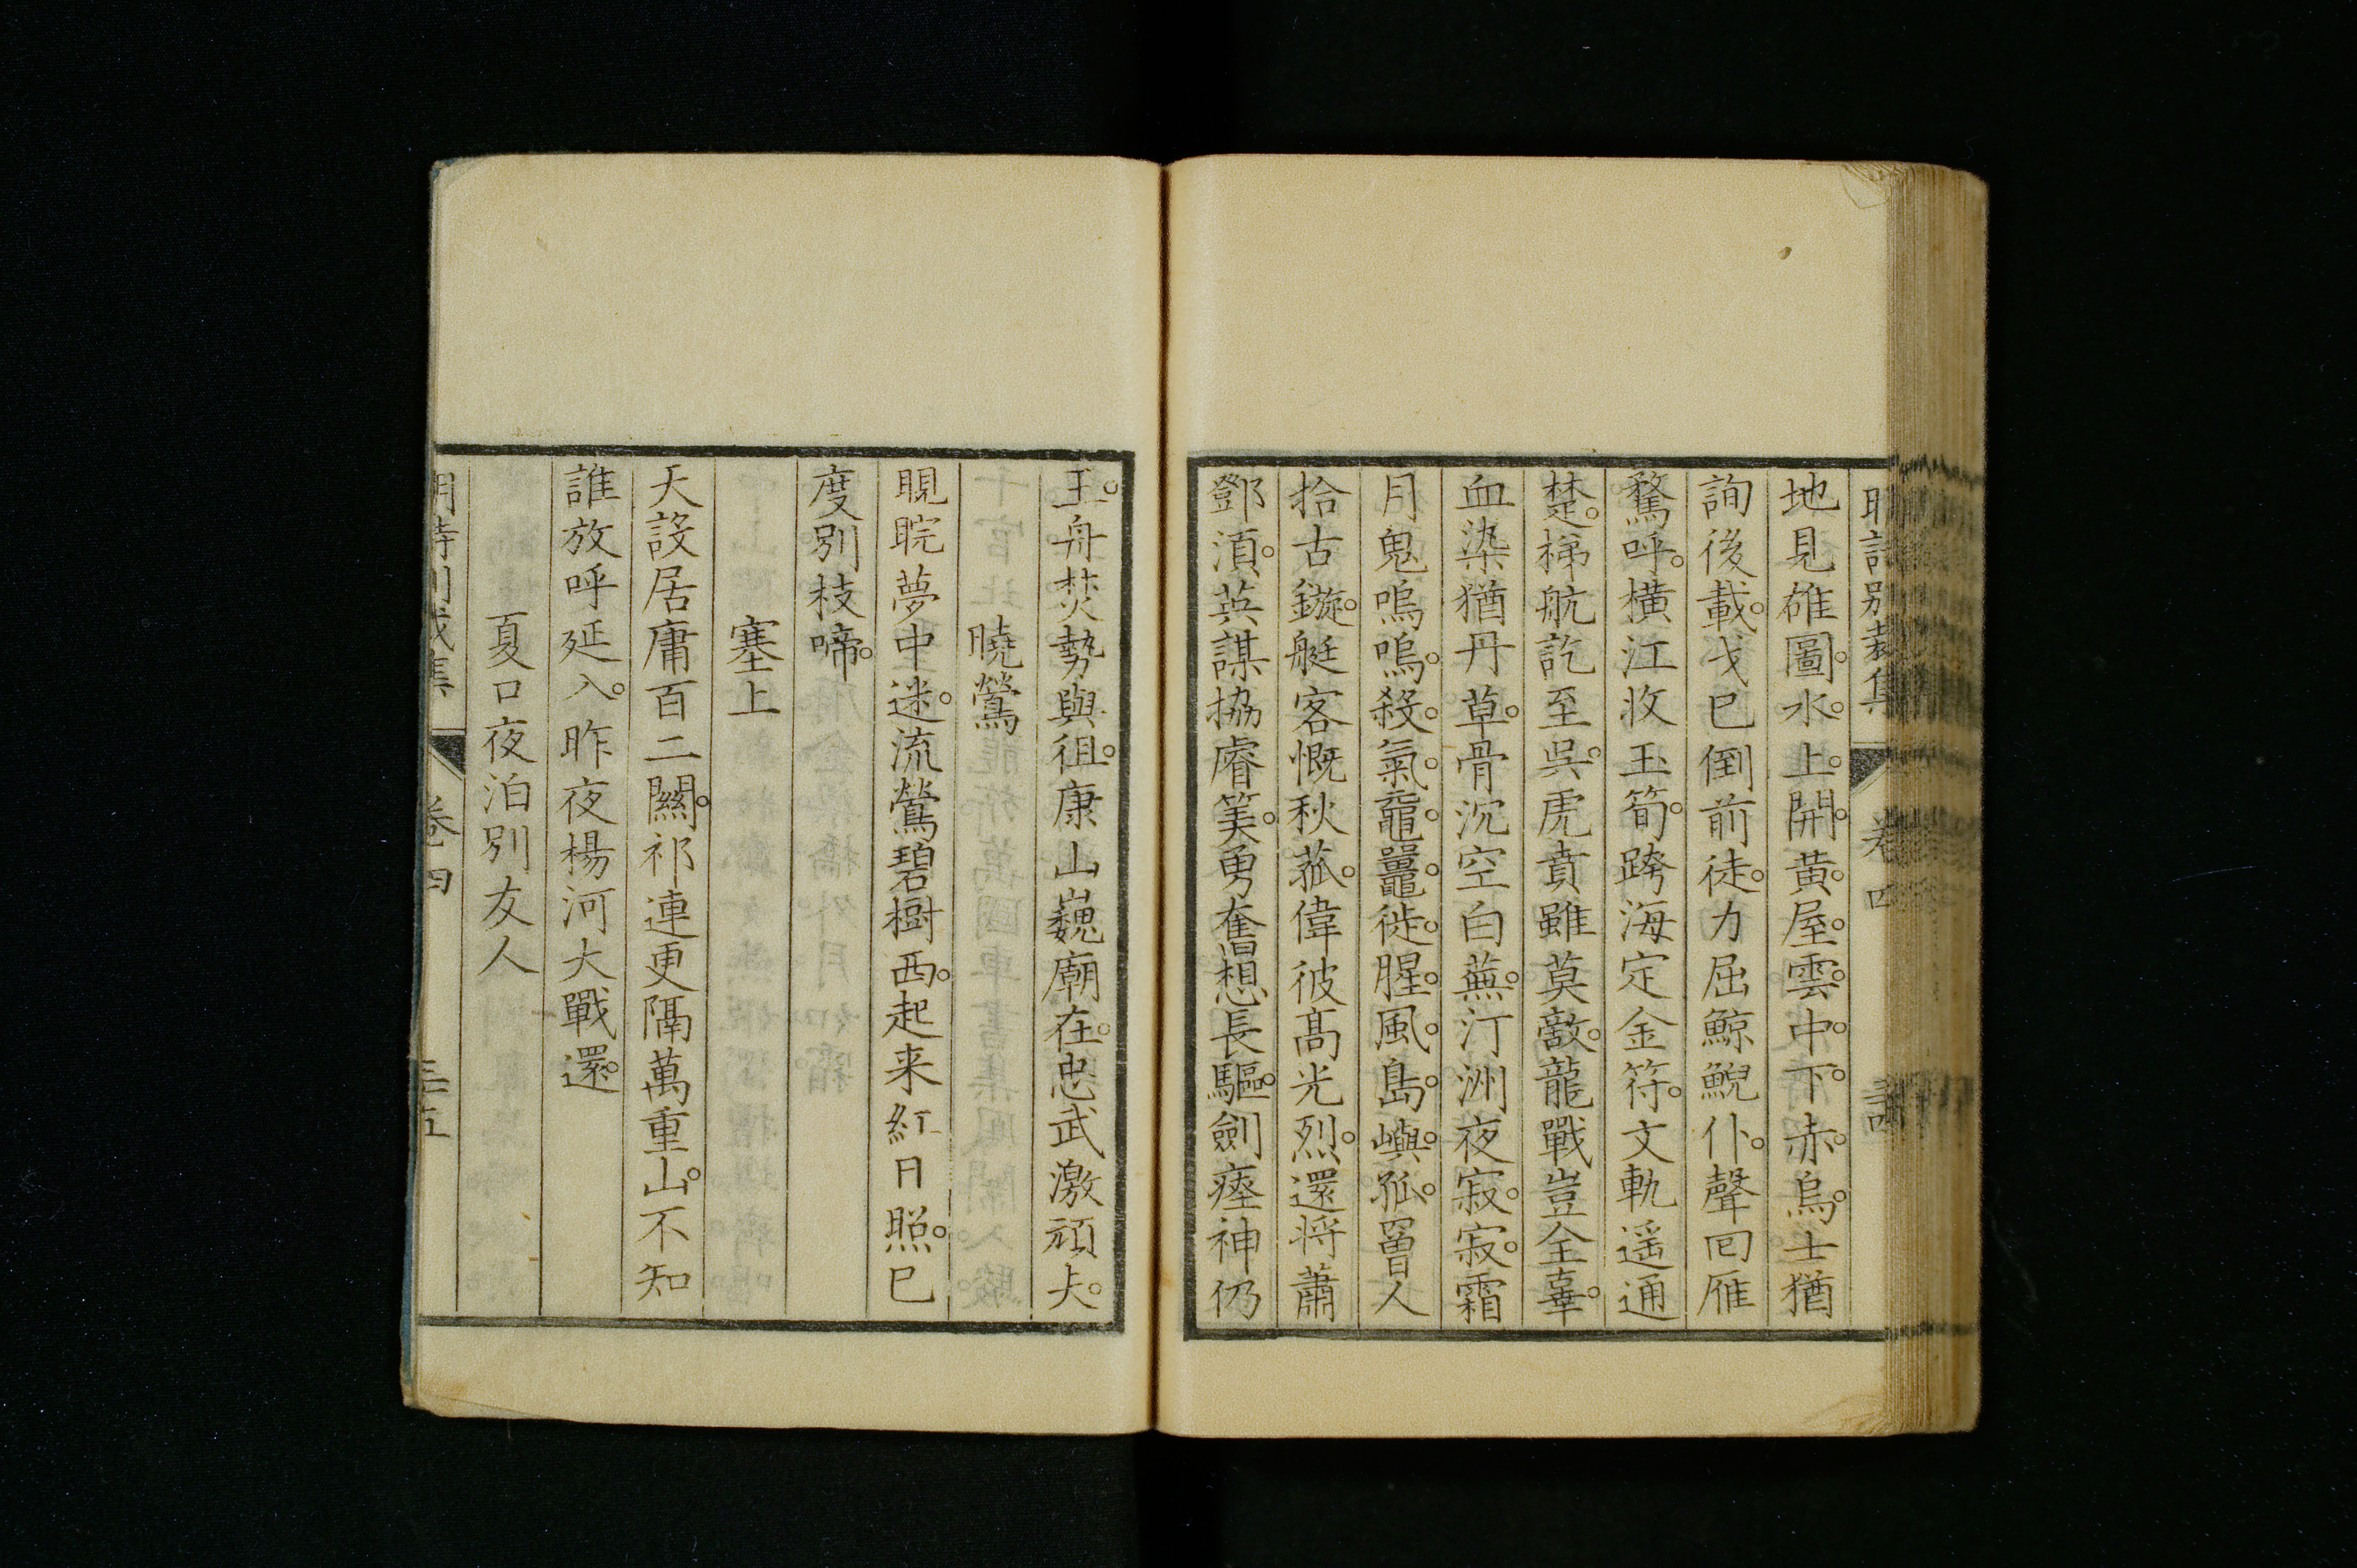 明詩別裁集 卷四
地見雄圖水上開黃屋雲中下赤烏士猶
詢後載戈已倒前徒力屈鯨鯢仆聲回雁
鶩呼橫江收玉筍跨海定金符文軌遥通
楚梯航訖至吳虎賁雖莫敵龍戰豈全辜
血染猶丹草骨沉空白蕪汀洲夜寂寂霜
月鬼嗚嗚殺氣黿鼉徙腥風島嶼孤罾人
拾古鏇艇客慨秋菰偉彼高光烈還將蕭
鄧湏英謀協睿筭勇奮想長驅劍瘞神仍
王舟焚勢與徂康山巍廟在忠武激頑夫
曉鶯
睍睆夢中迷流鶯碧樹西起来紅日照已
度別枝啼
塞上
天設居庸百二關祁連更隔萬重山不知
誰放呼延入昨夜楊河大戰還
夏口夜泊別友人
明詩別裁集 卷四 三五